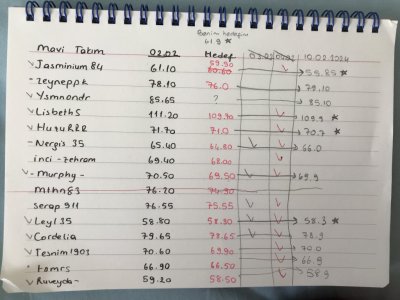 Benim hedefim
61.9 *
Mavi Takım 02.02 Hedef 03.02 10.02.2024
59.90
Jasminium84 61.10 60.60 55.85 *
zeyneppk 78.10 76.0 79.10
Ysmnondr 85.65 ? 85.10
Lisbeth5 111.20 109.90 109.9 *
71.70 71.0 70.7 *
Nergis 35 65.40 64.80 66.0
inci-zehram 69.40 68.00
-Murphy- 70.50 69.50 69.9
mthn83 76.20 74.90
serap 911 76.55 75.55
Leyl35 58.80 58.30 58.3 *
Cordelia 79.65 78.65 78.9
Tesnim1903 70.60 69.90 70.0
66.90 66.50 66.9
Ruveyda- 59.20 58.50 58.9